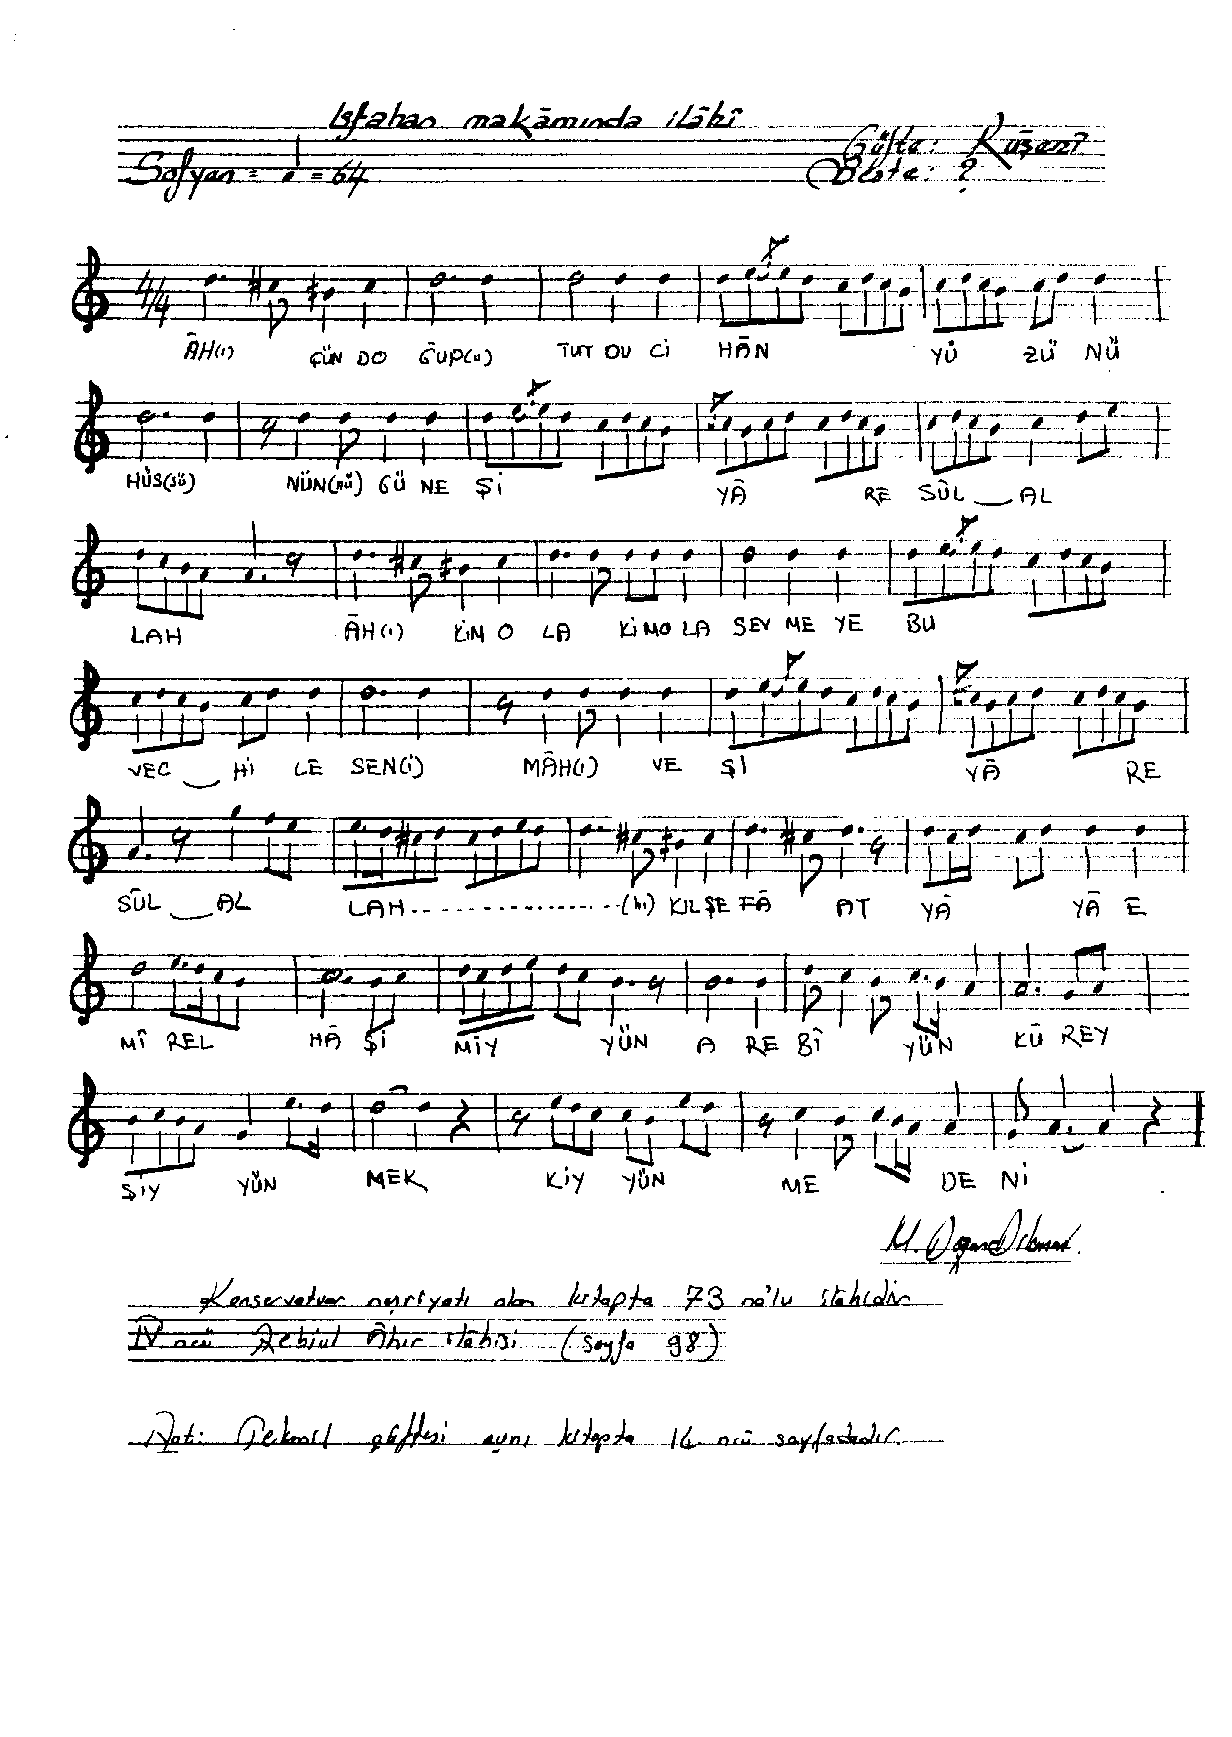 Isfahan makāmında ilāhî
Güfte: Rūşenî
Sofyan = ♩ = 64
Beste: ?
4/4
ĀH(ı) GÜN DO ĞUP(u) TUT DU Cİ HĀN YÜ ZÜ NÜ
HÜS(sü) NÜN(nü) GÜ NE Şİ YĀ RE SÛL AL
LAH ĀH(ı) KİM O LA KİM O LA SEV ME YE BU
VEC Hİ LE SEN(i) MÂH(ı) VE Şİ YĀ RE
SÛL AL LAH (hı) KIL ŞE FĀ AT YĀ YĀ E
MÎ REL HĀ Şİ MİY YÜN A RE BÎ YÜN KÛ REY
ŞİY YÜN MEK KİY YÜN ME DE NÎ
M. Doğan Dikmen
Konservatuar neşriyatı olan kitapta 73 no'lu ilāhidir
IV ncü Rebiul Âhır ilāhisi (sayfa 98)
Not: Tekmil güftesi aynı kitapta 14 ncü sayfadadır.